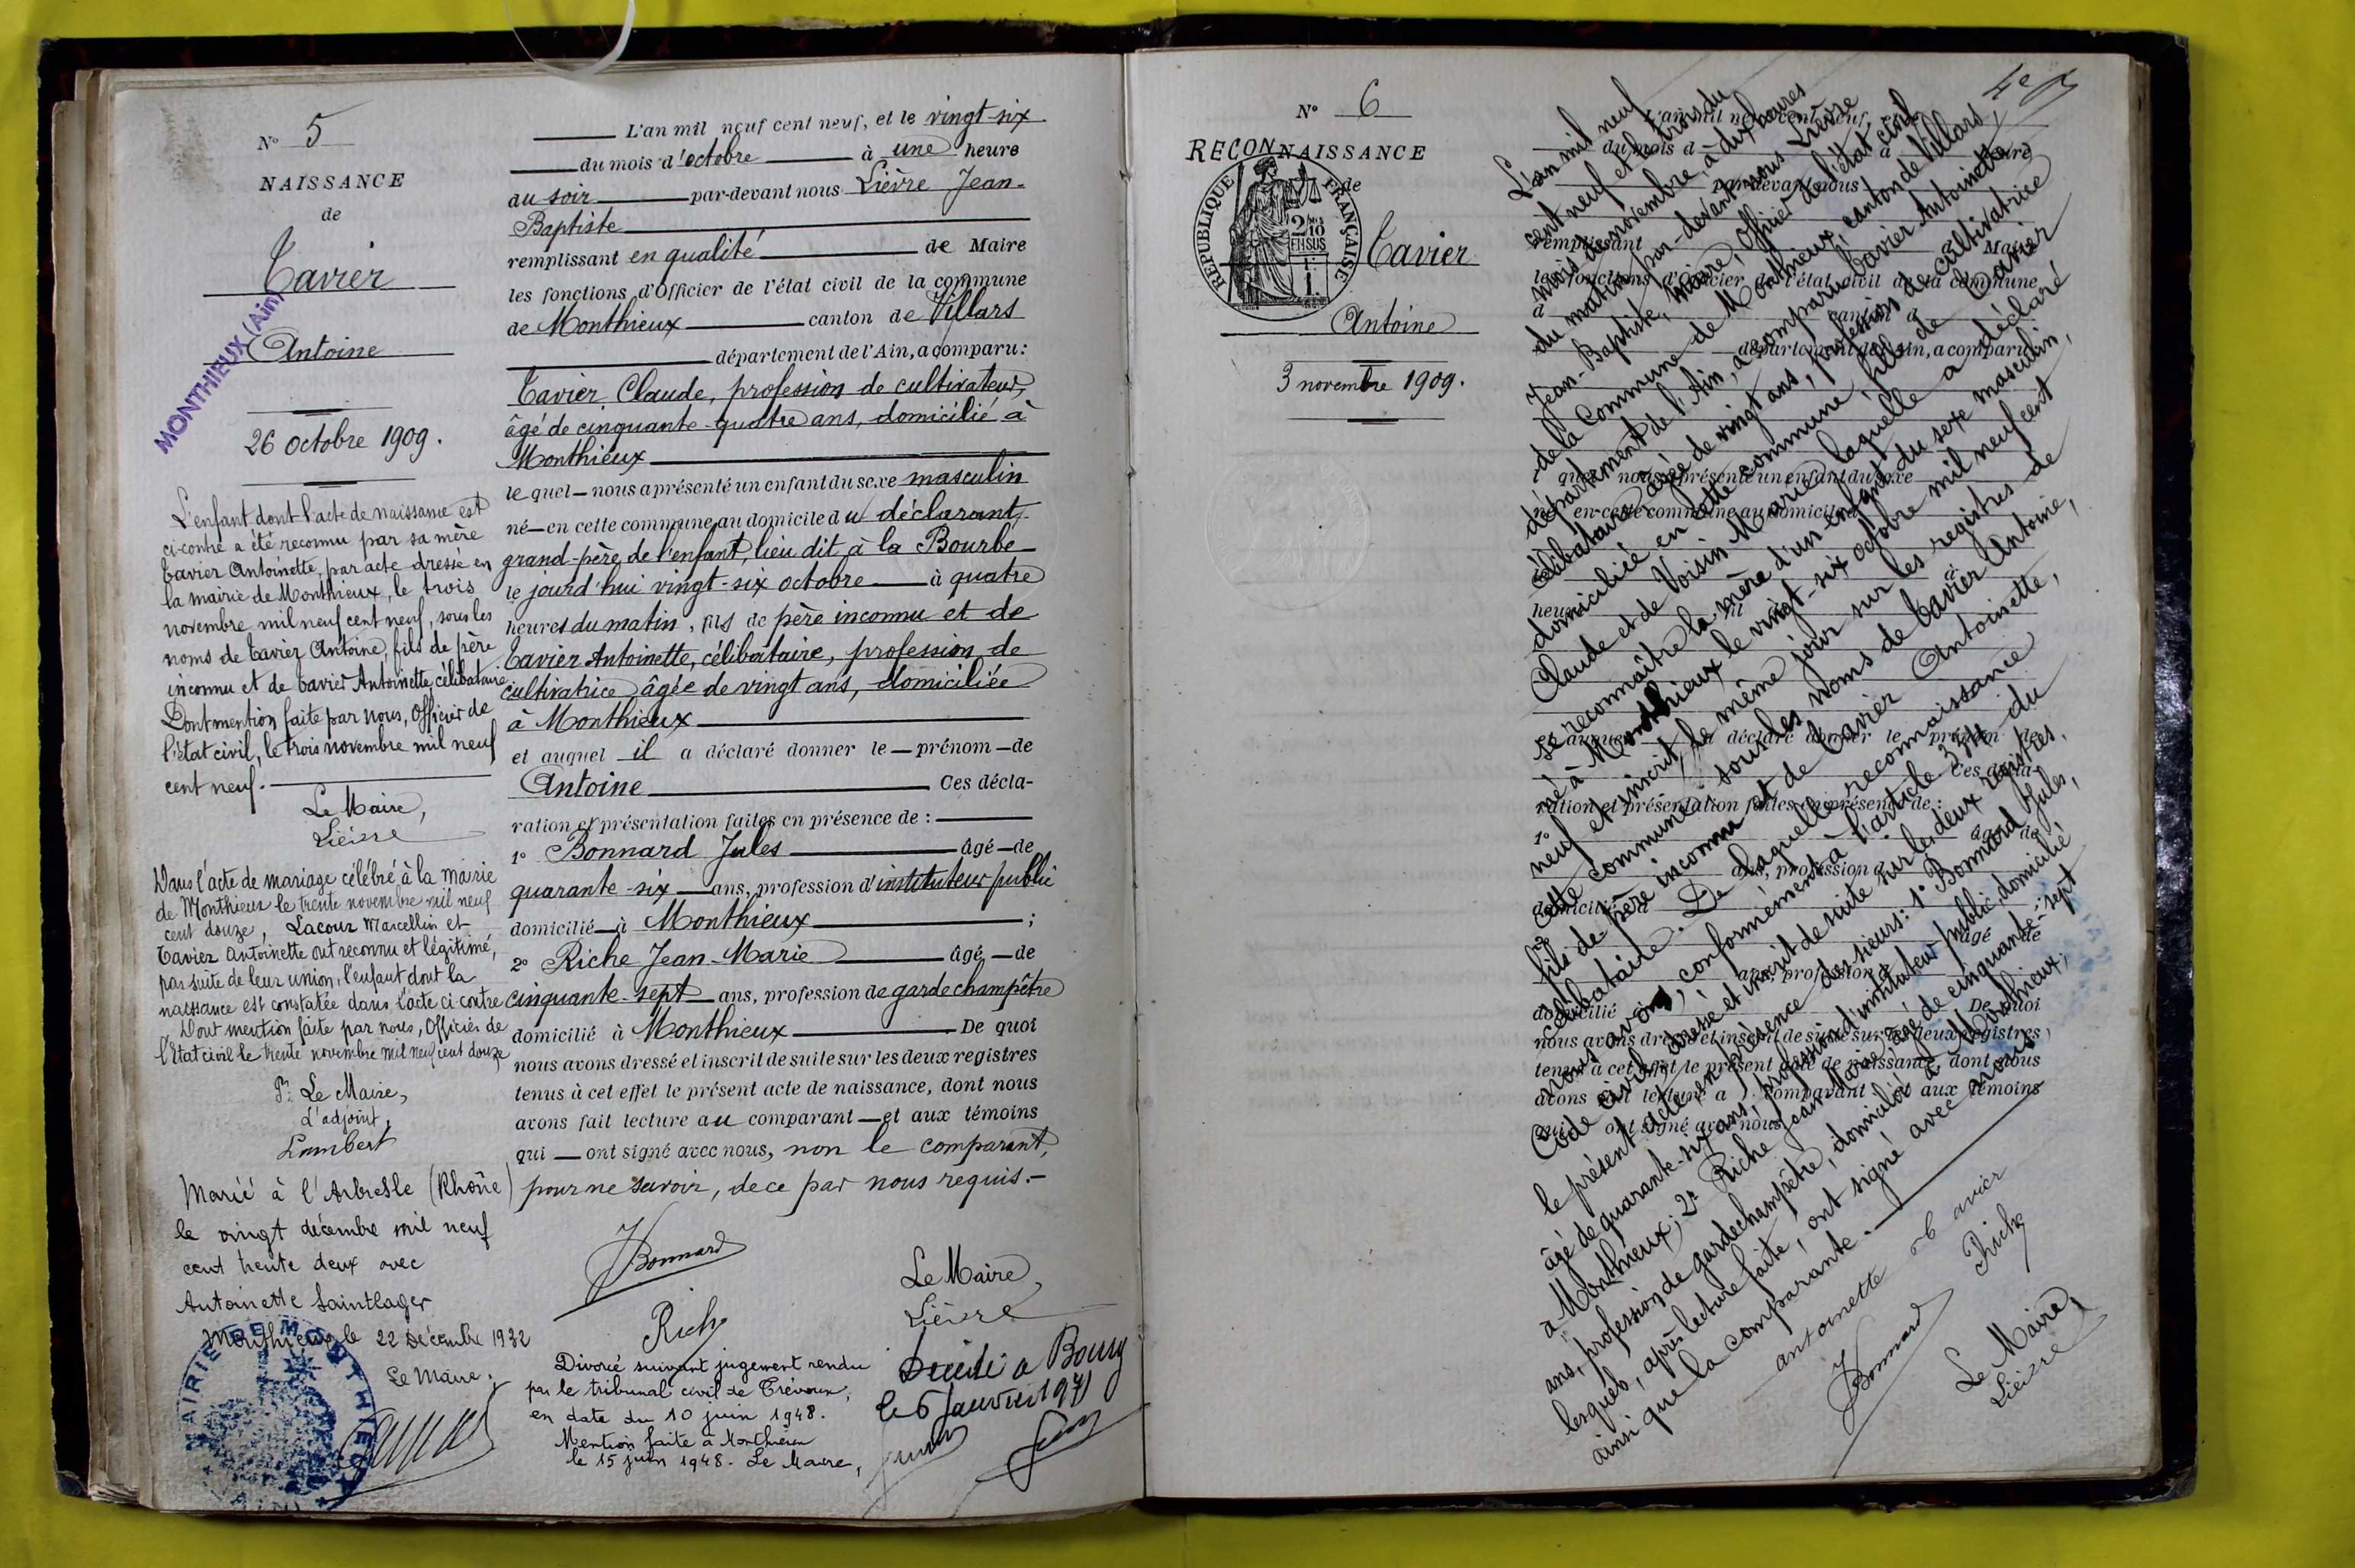 N° 5
NAISSANCE
de
Tavier
Antoine
MONTHIEUX (Ain)
26 octobre 1909.
L'enfant dont l'acte de naissance est
ci-contre a été reconnu par sa mère
Tavier Antoinette, par acte dressé en
la mairie de Monthieux, le trois
novembre mil neuf cent neuf, sous les
noms de Tavier Antoine, fils de père
inconnu et de Tavier Antoinette, célibataire.
Dont mention faite par nous, Officier de
l'état civil, le trois novembre mil neuf
cent neuf.
Le Maire,
Lièvre
Dans l'acte de mariage célébré à la mairie
de Monthieux le trente novembre mil neuf
cent douze, Lacour Marcellin et
Tavier Antoinette ont reconnu et légitimé,
par suite de leur union, l'enfant dont la
naissance est constatée dans l'acte ci contre
Dont mention faite par nous, Officier de
l'Etat civil le trente novembre mil neuf cent douze
Pr Le Maire,
L'adjoint,
Lambert
Marié à l'Arbresle (Rhône)
le vingt décembre mil neuf
cent trente deux avec
Antoinette Saintlager
Monthieux le 22 Décembre 1932
Le Maire,
MAIRIE DE MONTHIEUX
(AIN)
L'an mil neuf cent neuf, et le vingt-six
du mois d'octobre à une heure
du soir par-devant nous Lièvre Jean-
Baptiste
remplissant en qualité de Maire
les fonctions d'Officier de l'état civil de la commune
de Monthieux canton de Villars
département de l'Ain, a comparu:
Tavier Claude, profession de cultivateur,
âgé de cinquante-quatre ans, domicilié à
Monthieux
le quel nous a présenté un enfant du sexe masculin
né en cette commune au domicile du déclarant,
grand-père de l'enfant, lieu dit à la Bourbe
le jourd'hui vingt-six octobre à quatre
heures du matin, fils de père inconnu et de
Tavier Antoinette, célibataire, profession de
cultivatrice, âgée de vingt ans, domiciliée
à Monthieux
et auquel il a déclaré donner le prénom de
Antoine Ces décla-
ration et présentation faites en présence de :
1° Bonnard Jules âgé de
quarante-six ans, profession d'instituteur public
domicilié à Monthieux ;
2° Riche Jean-Marie âgé de
cinquante-sept ans, profession de garde champêtre
domicilié à Monthieux De quoi
nous avons dressé et inscrit de suite sur les deux registres
tenus à cet effet le présent acte de naissance, dont nous
avons fait lecture au comparant et aux témoins
qui ont signé avec nous, non le comparant,
pour ne savoir, de ce par nous requis.
JBonnard
Riche
Le Maire,
Lièvre
Divorcé suivant jugement rendu
par le tribunal civil de Trévoux,
en date du 10 juin 1948.
Mention faite à Monthieux
le 15 juin 1948. Le Maire,
Décédé a Bourg
le 6 Janvier 1971
N° 6
RECONNAISSANCE
de
REPUBLIQUE FRANÇAISE
2/10
EN SUS
Tavier
Antoine
3 novembre 1909.
L'an mil neuf
cent neuf et le trois du
mois de novembre, à dix heures
du matin, par-devant nous Lièvre
Jean-Baptiste, Maire, Officier de l'état civil
de la Commune de Monthieux, canton de Villars,
département de l'Ain, a comparu Tavier Antoinette,
célibataire, âgée de vingt ans, profession de cultivatrice
domiciliée en cette commune, fille de Tavier
Claude et de Voisin Marie, laquelle a déclaré
se reconnaître la mère d'un enfant du sexe masculin,
né à Monthieux le vingt-six octobre mil neuf cent
neuf et inscrit le même jour sur les registres de
cette commune sous les noms de Tavier Antoine,
fils de père inconnu et de Tavier Antoinette,
célibataire. De laquelle reconnaissance
nous avons, conformément à l'article 334 du
Code civil, dressé et inscrit de suite sur les deux registres,
le présent acte, en présence des sieurs: 1° Bonnard Jules,
âgé de quarante-six ans, profession d'instituteur public, domicilié
à Monthieux; 2° Riche Jean-Marie, âgé de cinquante-sept
ans, profession de garde champêtre, domicilié à Monthieux,
lesquels, après lecture faite, ont signé avec nous
ainsi que la comparante.
antoinette Tavier
Riche
JBonnard
Le Maire,
Lièvre